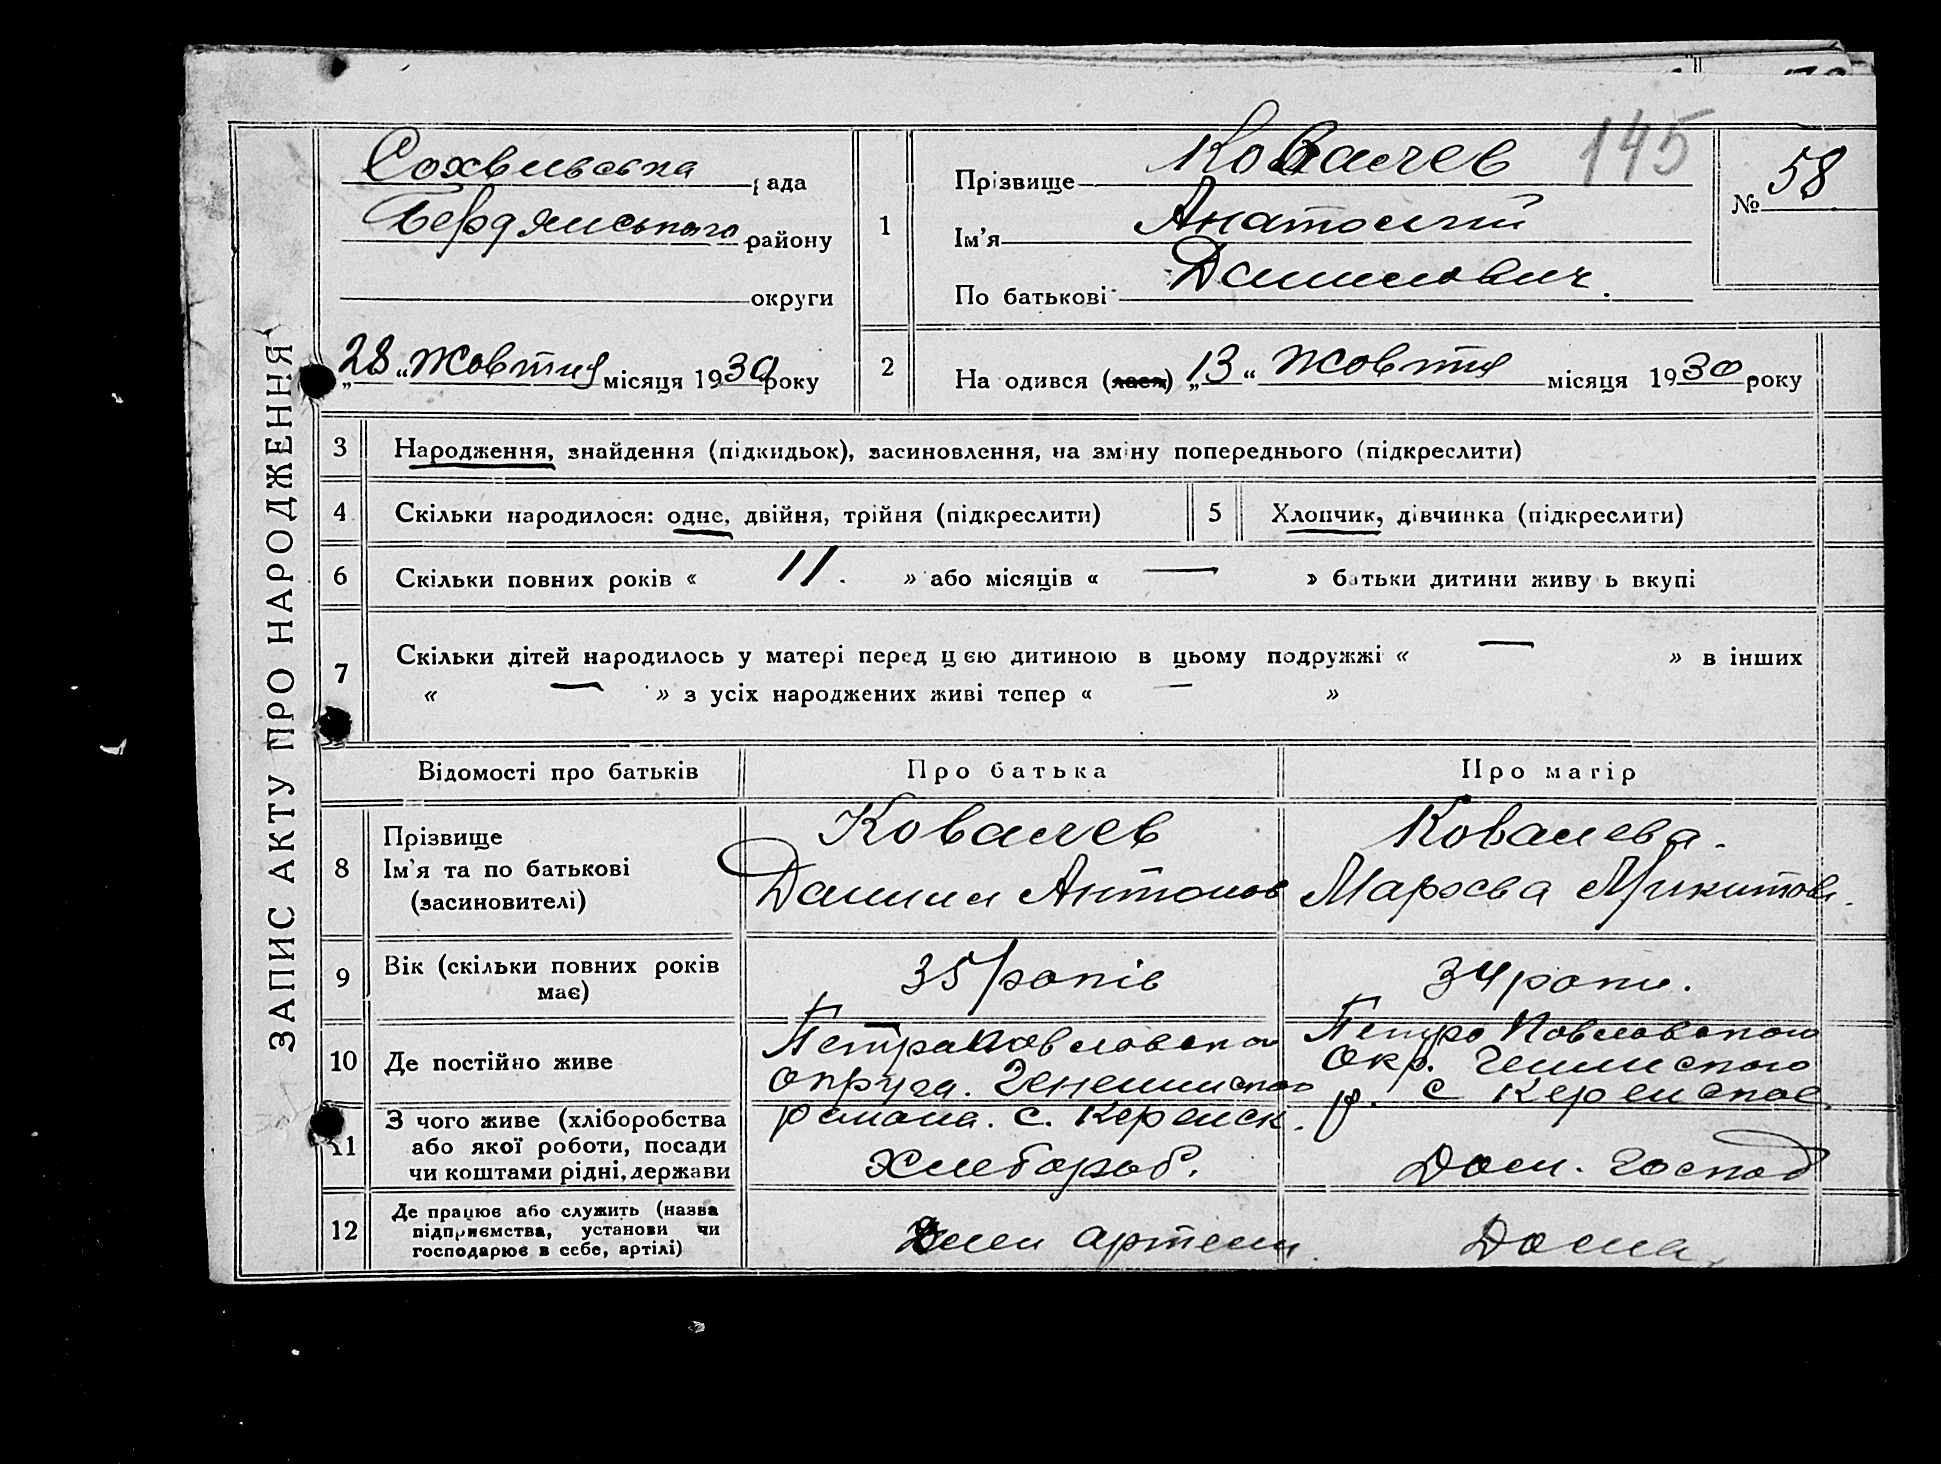 ЗАПИС АКТУ ПРО НАРОДЖЕННЯ
145
рада
Бердянського району
округи
„28“ Жовтня місяця 1930 року
1
Прізвище Ковалев
Ім'я Анатолій
По батькові Данилович.
№ 58
2
На одився (лася) „13“ Жовтня місяця 1930 року
3 Народження, знайдення (підкидьок), засиновлення, на зміну попереднього (підкреслити)
4 Скільки народилося: одне, двійня, трійня (підкреслити)
5 Хлопчик, дівчинка (підкреслити)
6 Скільки повних років « 11. » або місяців « — » батьки дитини живу ь вкупі
7 Скільки дітей народилось у матері перед цією дитиною в цьому подружжі « — » в інших
« — » з усіх народжених живі тепер « — »
Відомості про батьків Про батька Про матір
8 Прізвище
Ім'я та по батькові
(засновителі)
Ковалев
Данили Антонов
Ковалева.
Микитов.
9 Вік (скільки повних років
має)
35 років
34 роки.
10 Де постійно живе
Петрапавловского
округа.
района. с.
Петро Повловского
Окр.
р. с
11 З чого живе (хліборобства
або якої роботи, посади
чи коштами рідні, держави
Хлебороб.
Дом. господ
12 Де працює або служить (назва
підприємства, установи чи
господарює в себе, артілі)
артели
Дома.